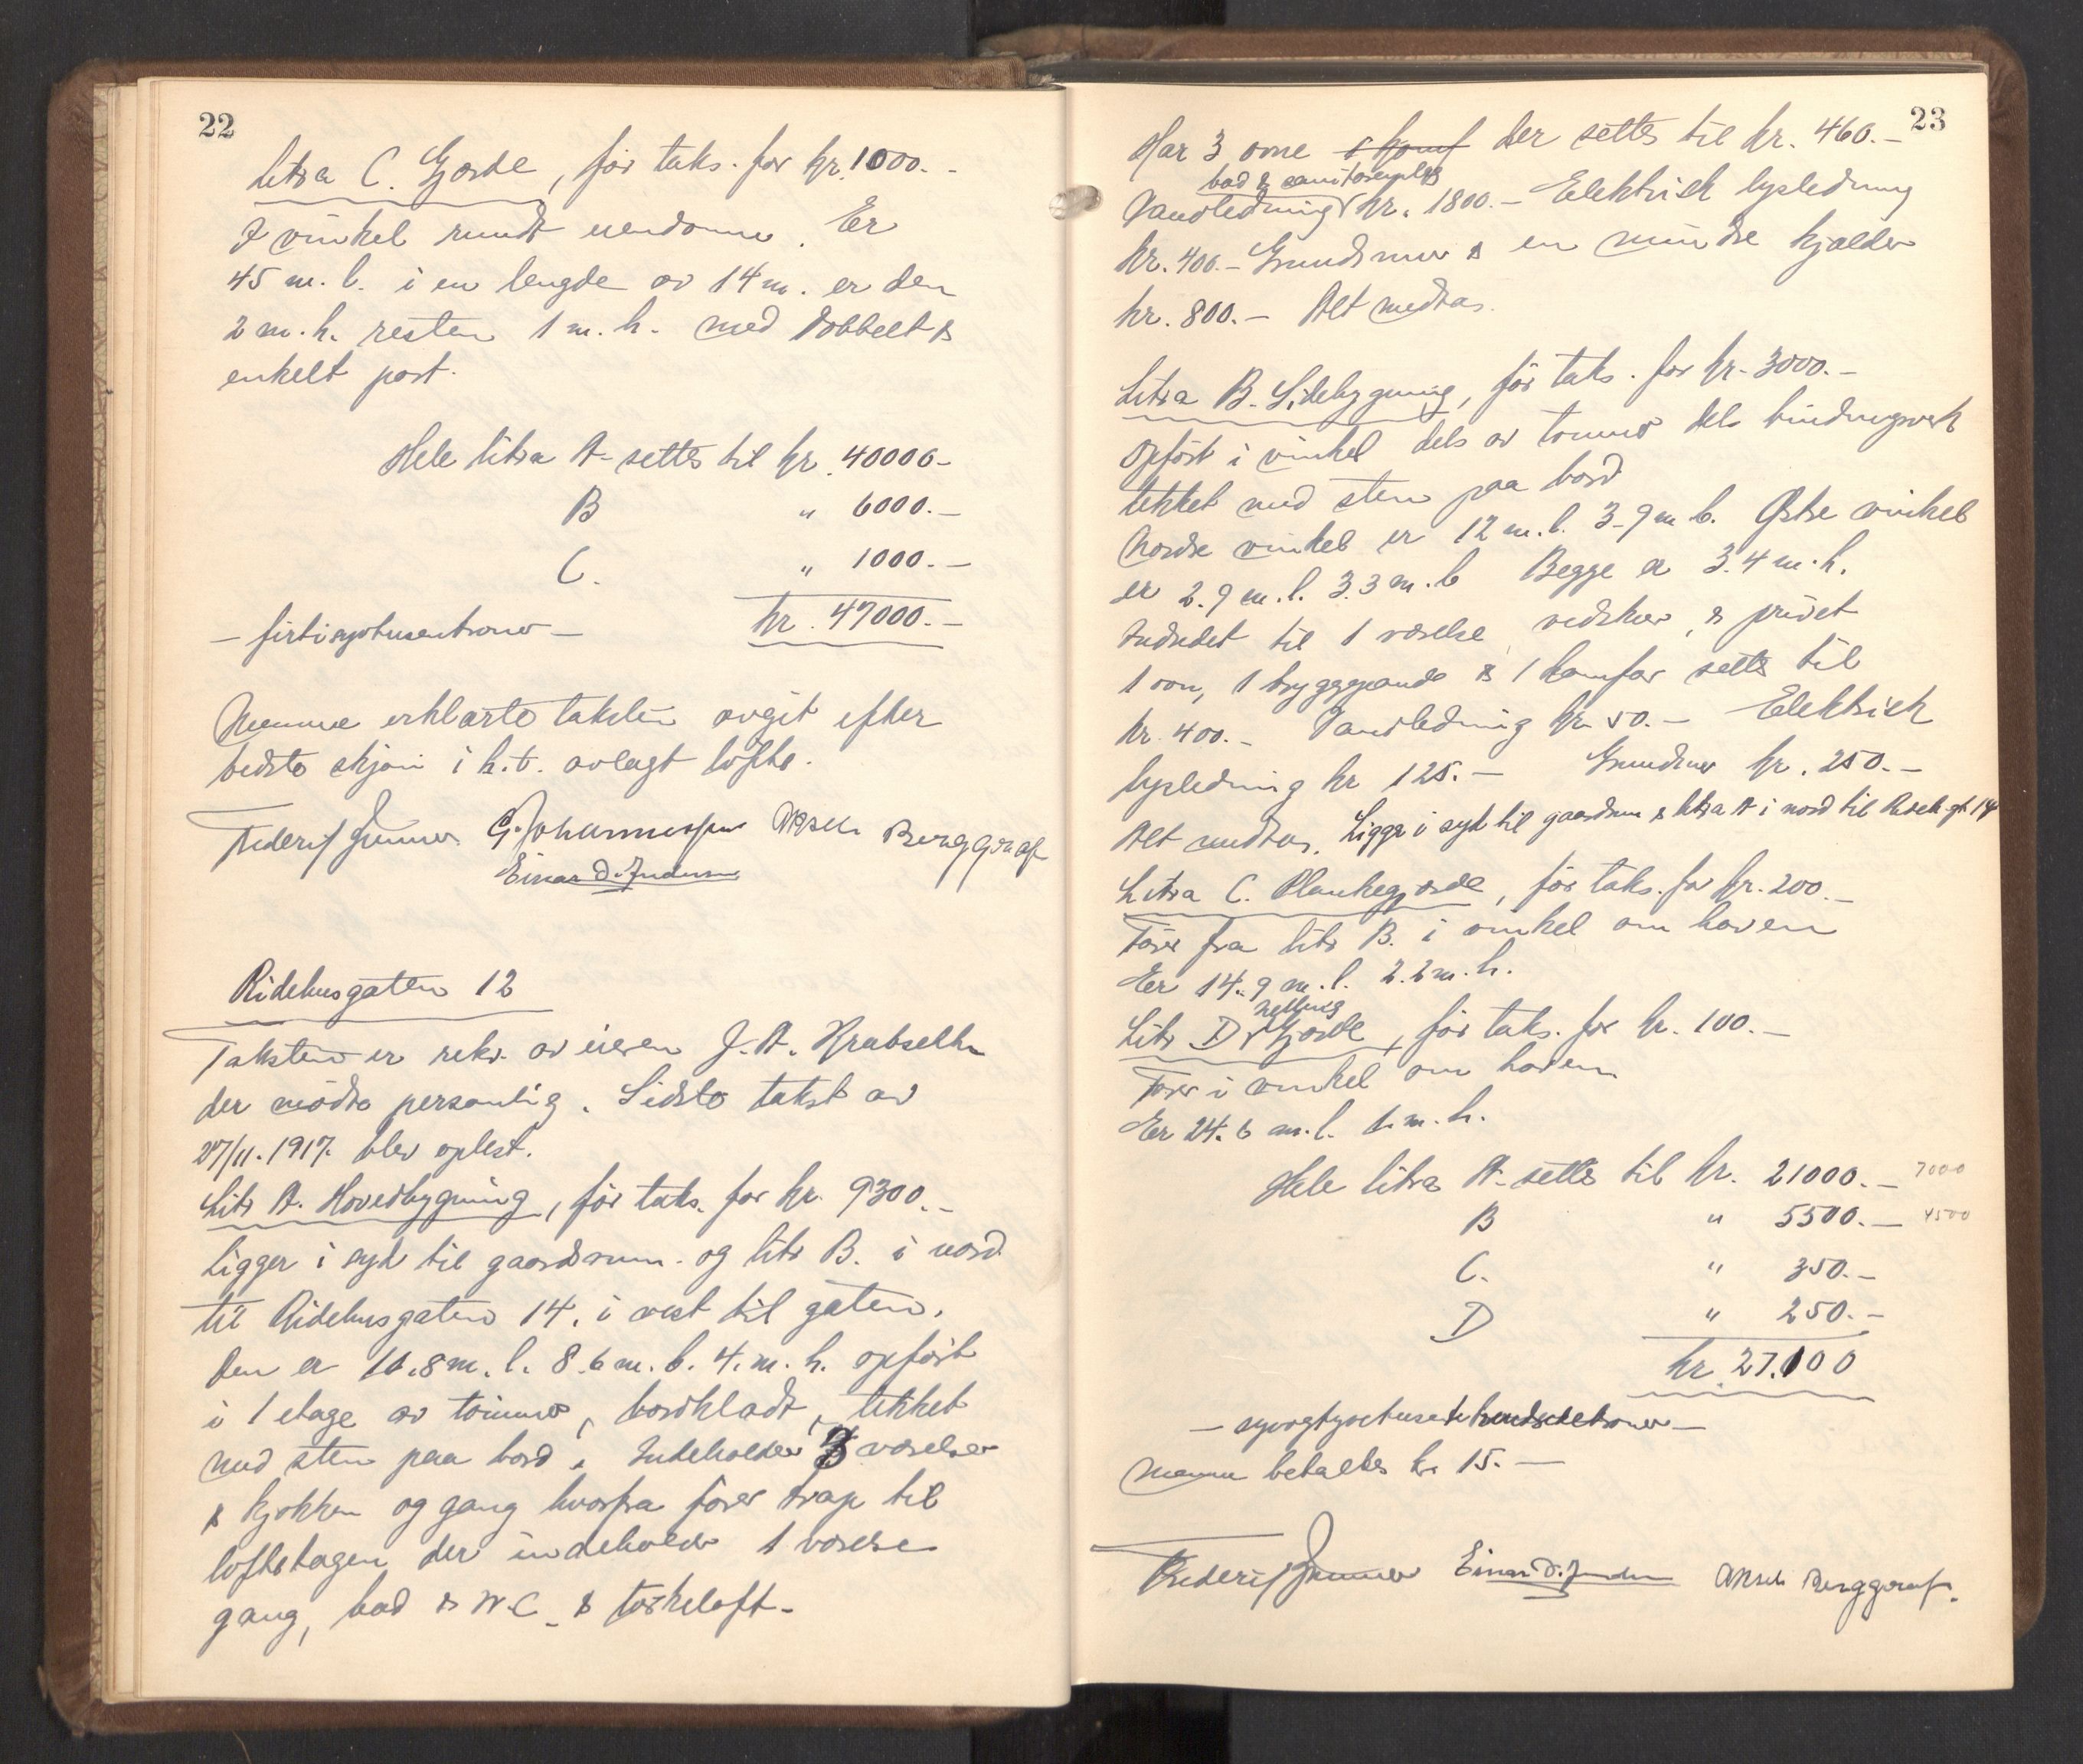 22
Litra C. Gjærde, før taks. for kr. 1000.-
I vinkel rundt eiendomme. Er
45 m. l. i en lengde av 14 m. er den
2 m. h. resten 1 m. h. med dobbelt &
enkelt port.
Hele litra A settes til kr. 40000-
B " 6000.-
C. " 1000.-
- firtisyvtusenkroner - kr. 47000.-
Mennene erklærte taksten avgit efter
bedste skjøn i h.t. avlagt løfte.
G. Johannessen Aksel Berggraf
Einar D.
Ridehusgaten 12
Taksten er rekv. av eieren J. A.
der mødte personlig. Sidste takst av
27/11. 1917. blev oplest.
Litr A. Hovedbygning, før taks. for kr. 9300.-
Ligger i syd til gaardsrum. og litr B. i nord
til Ridehusgaten 14. i vest til gaten.
Den er 10.8 m. l. 8.6 m. b. 4. m. h. opført
i 1 etage av tømmer, bordklædt, tekket
med sten paa bord. Indeholder 3 værelser
& kjøkken og gang hvorfra fører trap til
loftetagen der indeholder 1 værelse
gang, bad & W.C. & tørkeloft.
23
Har 3 ovne & komf der settes til kr. 460.-
bad & sanitæranlæg
Vandledning kr. 1800.- Elektrisk lysledning
kr. 400.- Grundmur & en mindre kjælder
kr. 800.- Alt medtas.
Litra B. Sidebygning, før taks. for kr. 3000.-
Opført i vinkel dels av tømmer dels bindingsverk
tekket med sten paa bord
Nordre vinkel er 12 m. l. 3.9 m b. Østre vinkel
er 2.9 m. l. 3.3 m. b Begge er 3.4 m. h.
Indredet til 1 værelse, vedskur, & privet
1 ovn, 1 bryggepande & 1 komfor settes til
kr. 400.- Vandledning kr. 50.- Elektrisk
lysledning kr 125.- Grundmur kr. 250.-
Alt medtas. Ligger i syd til gaardsrum & litra A i nord til Rideh.gt 14
Litra C. Plankegjærde, før taks. for kr. 200.-
Fører fra litr B. i vinkel om haven
Er 14.9 m. l. 2.2 m. h.
netting
Litr D Gjærde, før taks. for kr. 100.-
Fører i vinkel om haven
Er 24.6 m. l. 1. m. h.
Hele litra A settes til kr. 21000.- 7000
B " 5500.- 4500
C. " 350.-
D " 250.-
kr. 27.100
- syvogtyvetusenethundredekroner -
Mennene betaltes kr 15.-
Einar D. Aksel Berggraf.